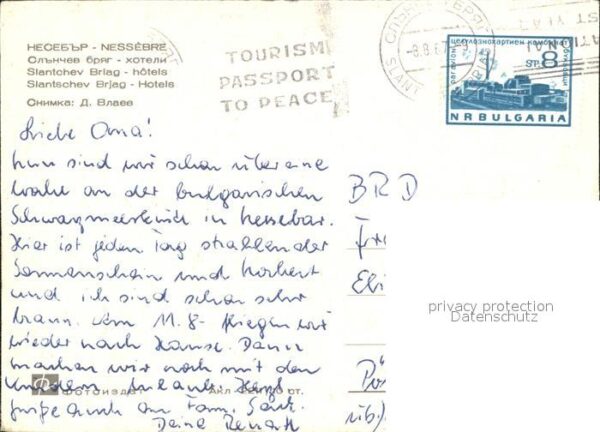 НЕСЕБЪР - NESSÈBRE
Слънчев бряг - хотели
Slantchev Briag - hôtels
Slantschev Brjag - Hotels
Снимка: Д. Влаев
TOURISM
PASSPORT
TO PEACE
СЛЪНЧЕВ БРЯГ
-8.8.67
SLANT
8
ST.
NRBULGARIA
Liebe Oma!
Nun sind wir schon über eine
Woche an der bulgarischen
Schwarzmeerküste in Nessebar.
Hier ist jeden Tag strahlender
Sonnenschein und Norbert
und ich sind schon sehr
braun. Am 11.8. fliegen wir
wieder nach Hause. Dann
machen wir noch mit den
Kindern Urlaub. Herzl.
Grüße auch an Fam.
Deine Renate
BRD
privacy protection
Datenschutz
ФОТОИЗДАТ